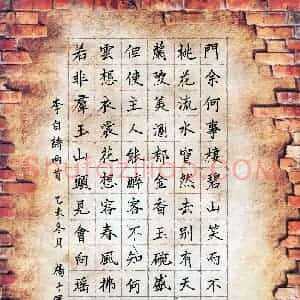 問余何事棲碧山笑而不
桃花流水窅然去別有天
蘭陵美酒郁金香玉碗盛
但使主人能醉客不知何
雲想衣裳花想容春風拂
若非羣玉山頭見會向瑤
李白詩首 乙未冬月 楊